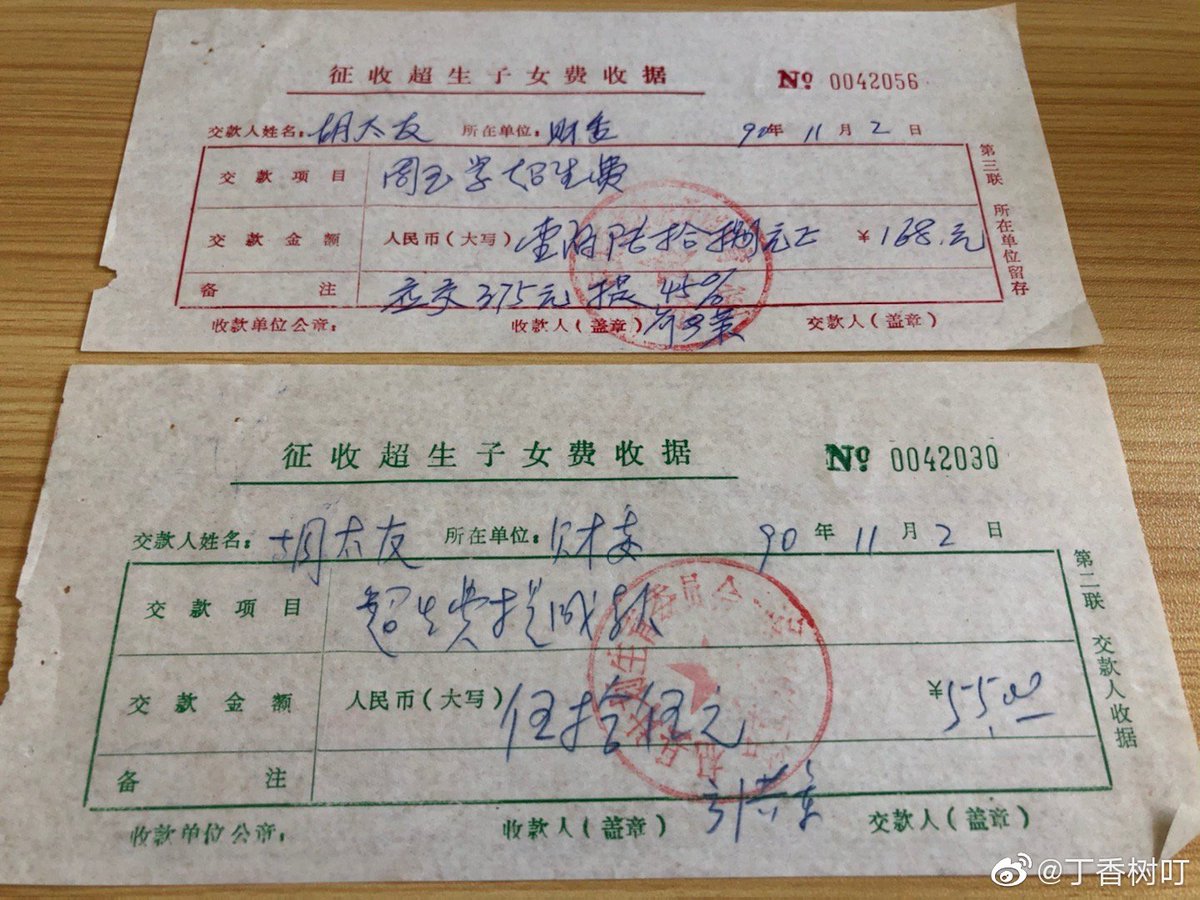 征收超生子女费收据 № 0042056
交款人姓名：胡太友 所在单位：财 90年 11月 2日
交款项目 周玉学超生费
交款金额 人民币（大写）壹佰陆拾捌元正 ￥168.元
备注 应交375元 提45%
收款单位公章： 收款人（盖章） 交款人（盖章）
第三联 所在单位留存
征收超生子女费收据 № 0042030
交款人姓名：胡太友 所在单位：财委 90年 11月 2日
交款项目 超生费提成款
交款金额 人民币（大写）伍拾伍元 ￥55.00
备注
收款单位公章： 收款人（盖章） 交款人（盖章）
第二联 交款人收据
@丁香树叮